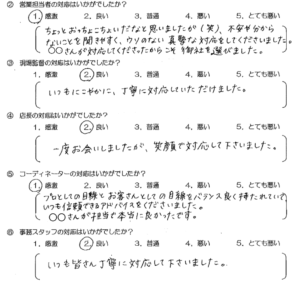 ② 営業担当者の対応はいかがでしたか?
1、感激 2、良い 3、普通 4、悪い 5、とても悪い
ちょっとおっちょこちょいだなと思いましたが(笑)、不安や分から
ないことを聞きやすく、ウソのない真摯な対応をしてくださいました。
○○さんが対応してくださったからこそ御社を選びました。
③ 現場監督の対応はいかがでしたか?
1、感激 2、良い 3、普通 4、悪い 5、とても悪い
いつもにこやかに、丁寧に対応していただけました。
④ 店長の対応はいかがでしたか?
1、感激 2、良い 3、普通 4、悪い 5、とても悪い
一度お会いしましたが、笑顔で対応して下さいました。
⑤ コーディネーターの対応はいかがでしたか?
1、感激 2、良い 3、普通 4、悪い 5、とても悪い
プロとしての目線とお客さんとしての目線をバランス良く持たれていて、
いつも信頼できるアドバイスをくださいました。
○○さんが担当で本当に良かったです。
⑥ 事務スタッフの対応はいかがでしたか?
1、感激 2、良い 3、普通 4、悪い 5、とても悪い
いつも皆さん丁寧に対応して下さいました。